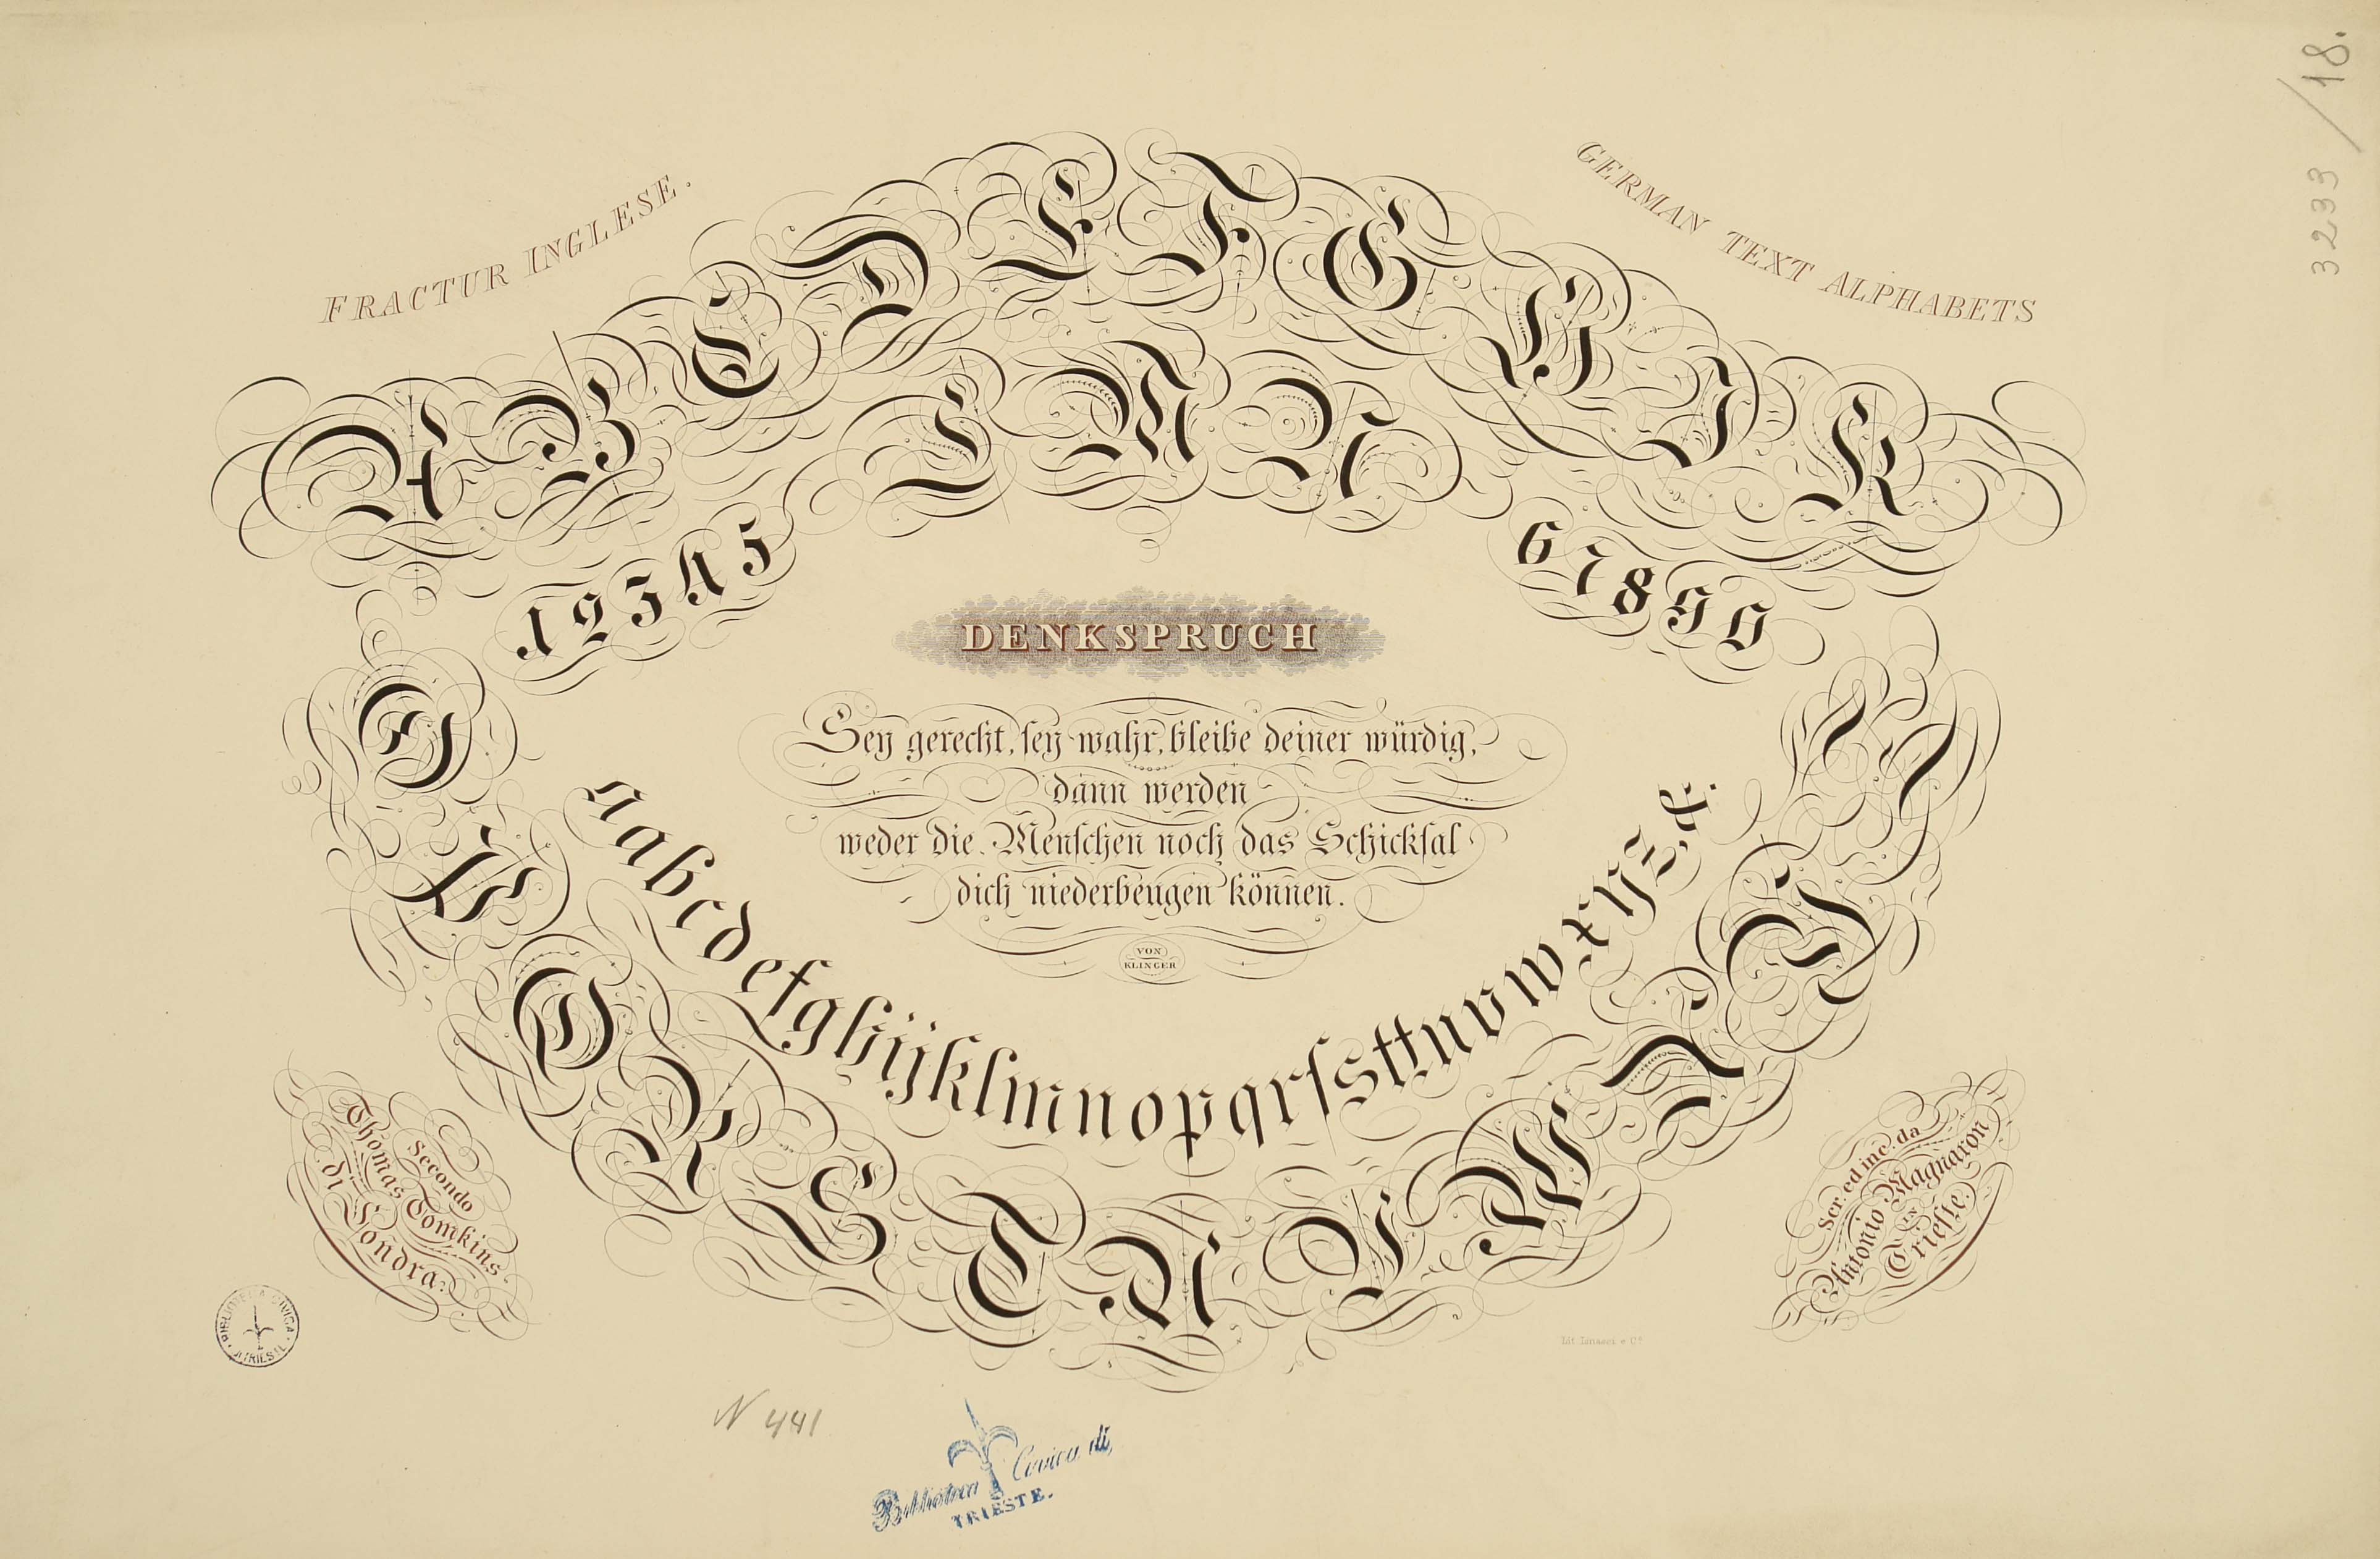 3233/18.
FRACTUR INGLESE.
GERMAN TEXT ALPHABETS
A B C D E F G H I K
L M N
1 2 3 4 5
6 7 8 9 0
O P Q R S T U V W X Y Z
DENKSPRUCH
Sey gerecht, ſey wahr, bleibe deiner würdig,
dann werden
weder die Menſchen noch das Schickſal
dich niederbeugen können.
VON
KLINGER
a a b c d e f g h i j k l m n o p q r ſ s t t u v w x y z, &.
Secondo
Thomas Tomkins
di Londra.
Scr. ed inc. da
Antonio Magnaron
IN
Trieſte.
BIBLIOTECA CIVICA
TRIESTE
Lit. Linassi e C.º
N 441
Biblioteca Civica di
TRIESTE.